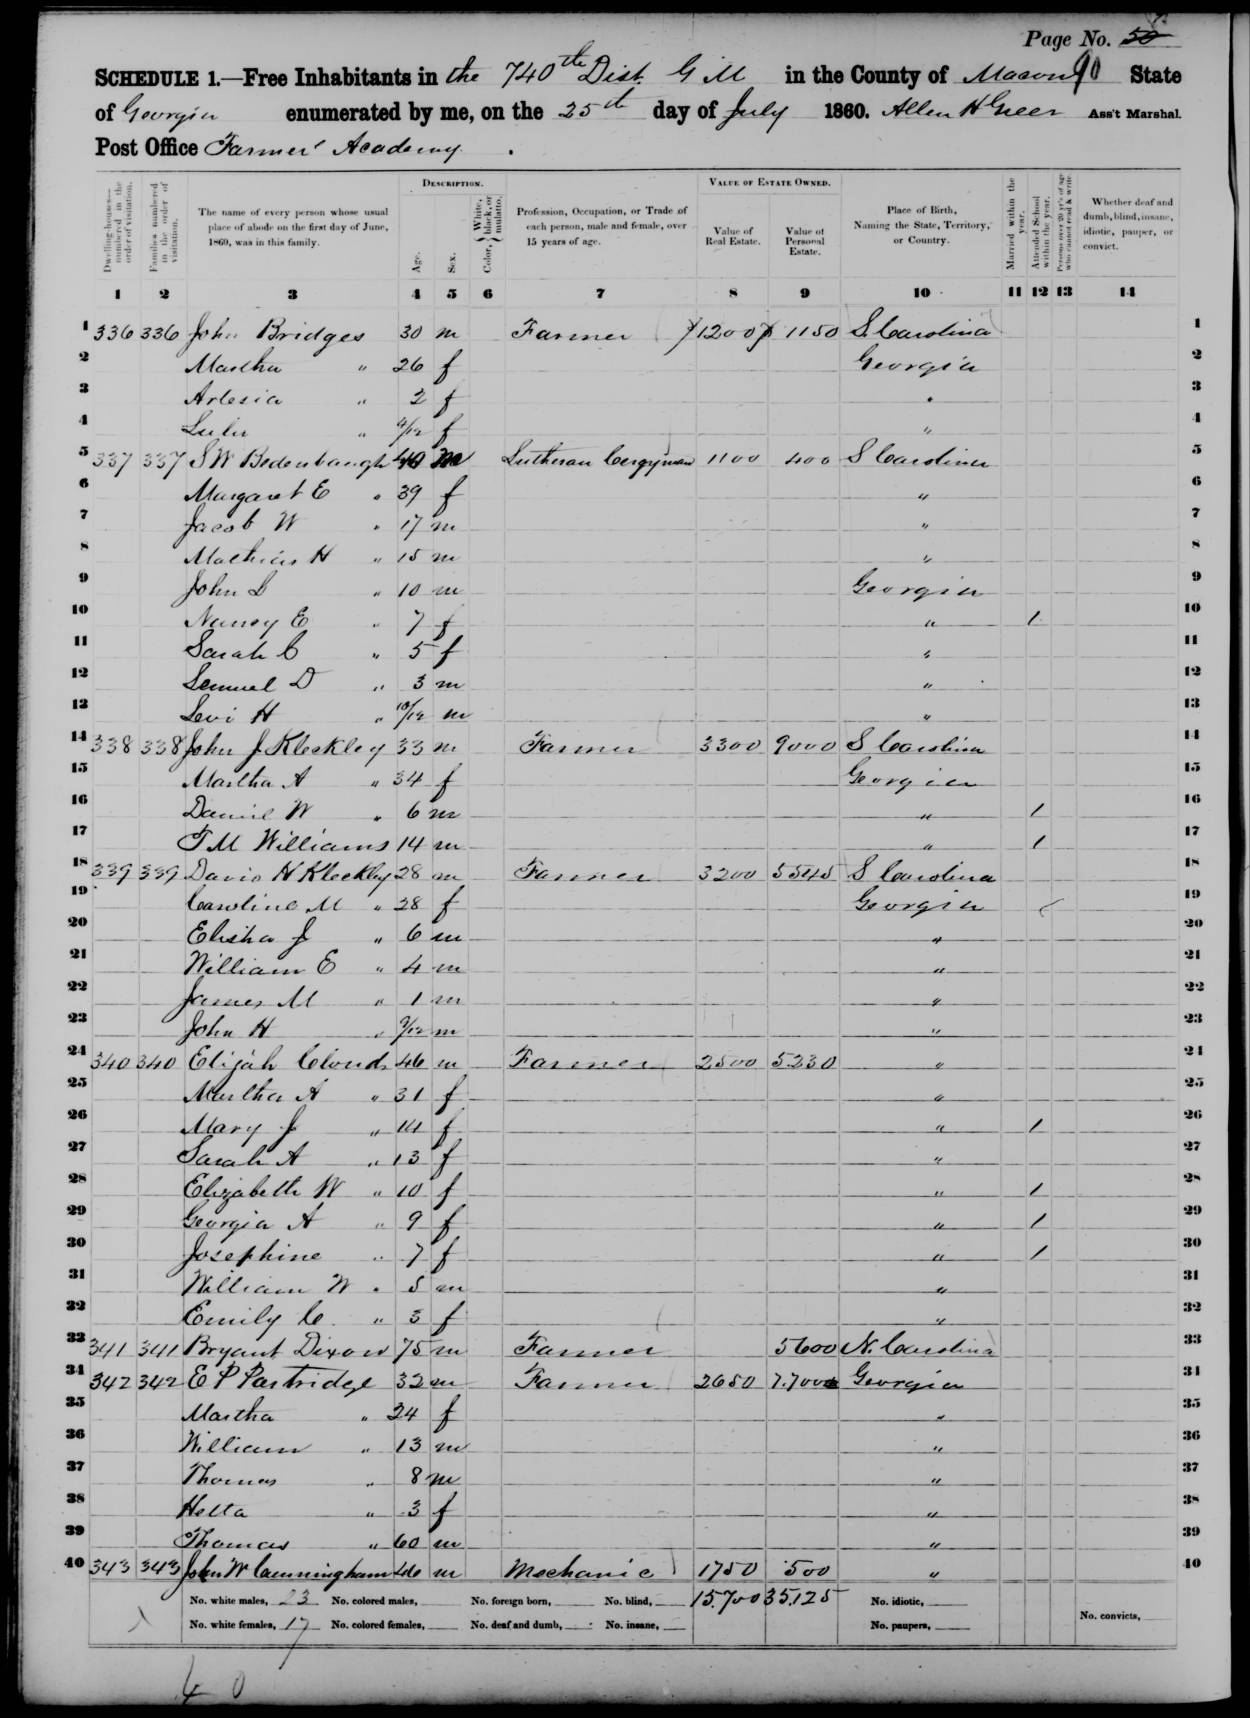 Page No. 50
SCHEDULE 1.—Free Inhabitants in the 740th Dist. G M in the County of Macon 90 State
of Georgia enumerated by me, on the 25th day of July 1860. Allen H Greer Ass't Marshal.
Post Office Farmers' Academy.
DESCRIPTION. VALUE OF ESTATE OWNED.
Dwelling-houses—numbered in the order of visitation. Families numbered in the order of visitation. The name of every person whose usual place of abode on the first day of June, 1860, was in this family. Age. Sex. Color, { White, black, or mulatto. Profession, Occupation, or Trade of each person, male and female, over 15 years of age. Value of Real Estate. Value of Personal Estate. Place of Birth, Naming the State, Territory, or Country. Married within the year. Attended School within the year. Persons over 20 y'rs of age who cannot read & write. Whether deaf and dumb, blind, insane, idiotic, pauper, or convict.
1 2 3 4 5 6 7 8 9 10 11 12 13 14
1 336 336 John Bridges 30 m Farmer 1200 1150 S Carolina 1
2 Martha " 26 f Georgia 2
3 Artesia " 2 f " 3
4 " f " 4
5 337 337 S W Bedenbaugh 40 m Lutheran Clergyman 1100 400 S Carolina 5
6 Margaret E " 39 f " 6
7 Jacob W " 17 m " 7
8 Mathias H " 15 m " 8
9 John L " 10 m Georgia 9
10 Nancy E " 7 f " 1 10
11 Sarah C " 5 f " 11
12 Lemuel D " 3 m " 12
13 Levi H " 10/12 m " 13
14 338 338 John J Kleckley 33 m Farmer 3300 9000 S Carolina 14
15 Martha A " 34 f Georgia 15
16 Daniel W " 6 m " 1 16
17 T M Williams 14 m " 1 17
18 339 339 David H Kleckley 28 m Farmer 3200 5545 S Carolina 18
19 Caroline M " 28 f Georgia 19
20 Elisha J " 6 m " 20
21 William E " 4 m " 21
22 James M " 1 m " 22
23 John H " m " 23
24 340 340 Elijah Clouds 46 m Farmer 2500 5230 " 24
25 Martha A " 31 f " 25
26 Mary J " 14 f " 1 26
27 Sarah A " 13 f " 27
28 Elizabeth W " 10 f " 1 28
29 Georgia A " 9 f " 1 29
30 Josephine " 7 f " 1 30
31 William W " 5 m " 31
32 Emily C. " 3 f " 32
33 341 341 Bryant Dixon 75 m Farmer 5600 N. Carolina 33
34 342 342 E P Partridge 32 m Farmer 2650 7.700 Georgia 34
35 Martha " 24 f " 35
36 William " 13 m " 36
37 Thomas " 8 m " 37
38 Hetta " 3 f " 38
39 Thomas " 60 m " 39
40 343 343 John W Cunningham 46 m Mechanic 1750 500 " 40
No. white males, 23 No. colored males, No. foreign born, No. blind, 15.700 35.125 No. idiotic,
No. white females, 17 No. colored females, No. deaf and dumb, No. insane, No. paupers, No. convicts,
40